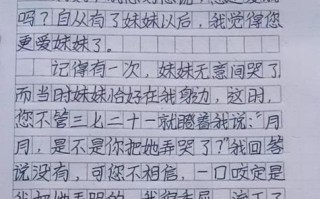 吗？自从有了妹妹以后，我觉得您
更爱妹妹了。
记得有一次，妹妹无意间哭了
而当时妹妹恰好在我身边，这时，
您不管三七二十一就瞪着我说："月
月，是不是你把她弄哭了？"我回答
说没有，可您不相信，一口咬定是